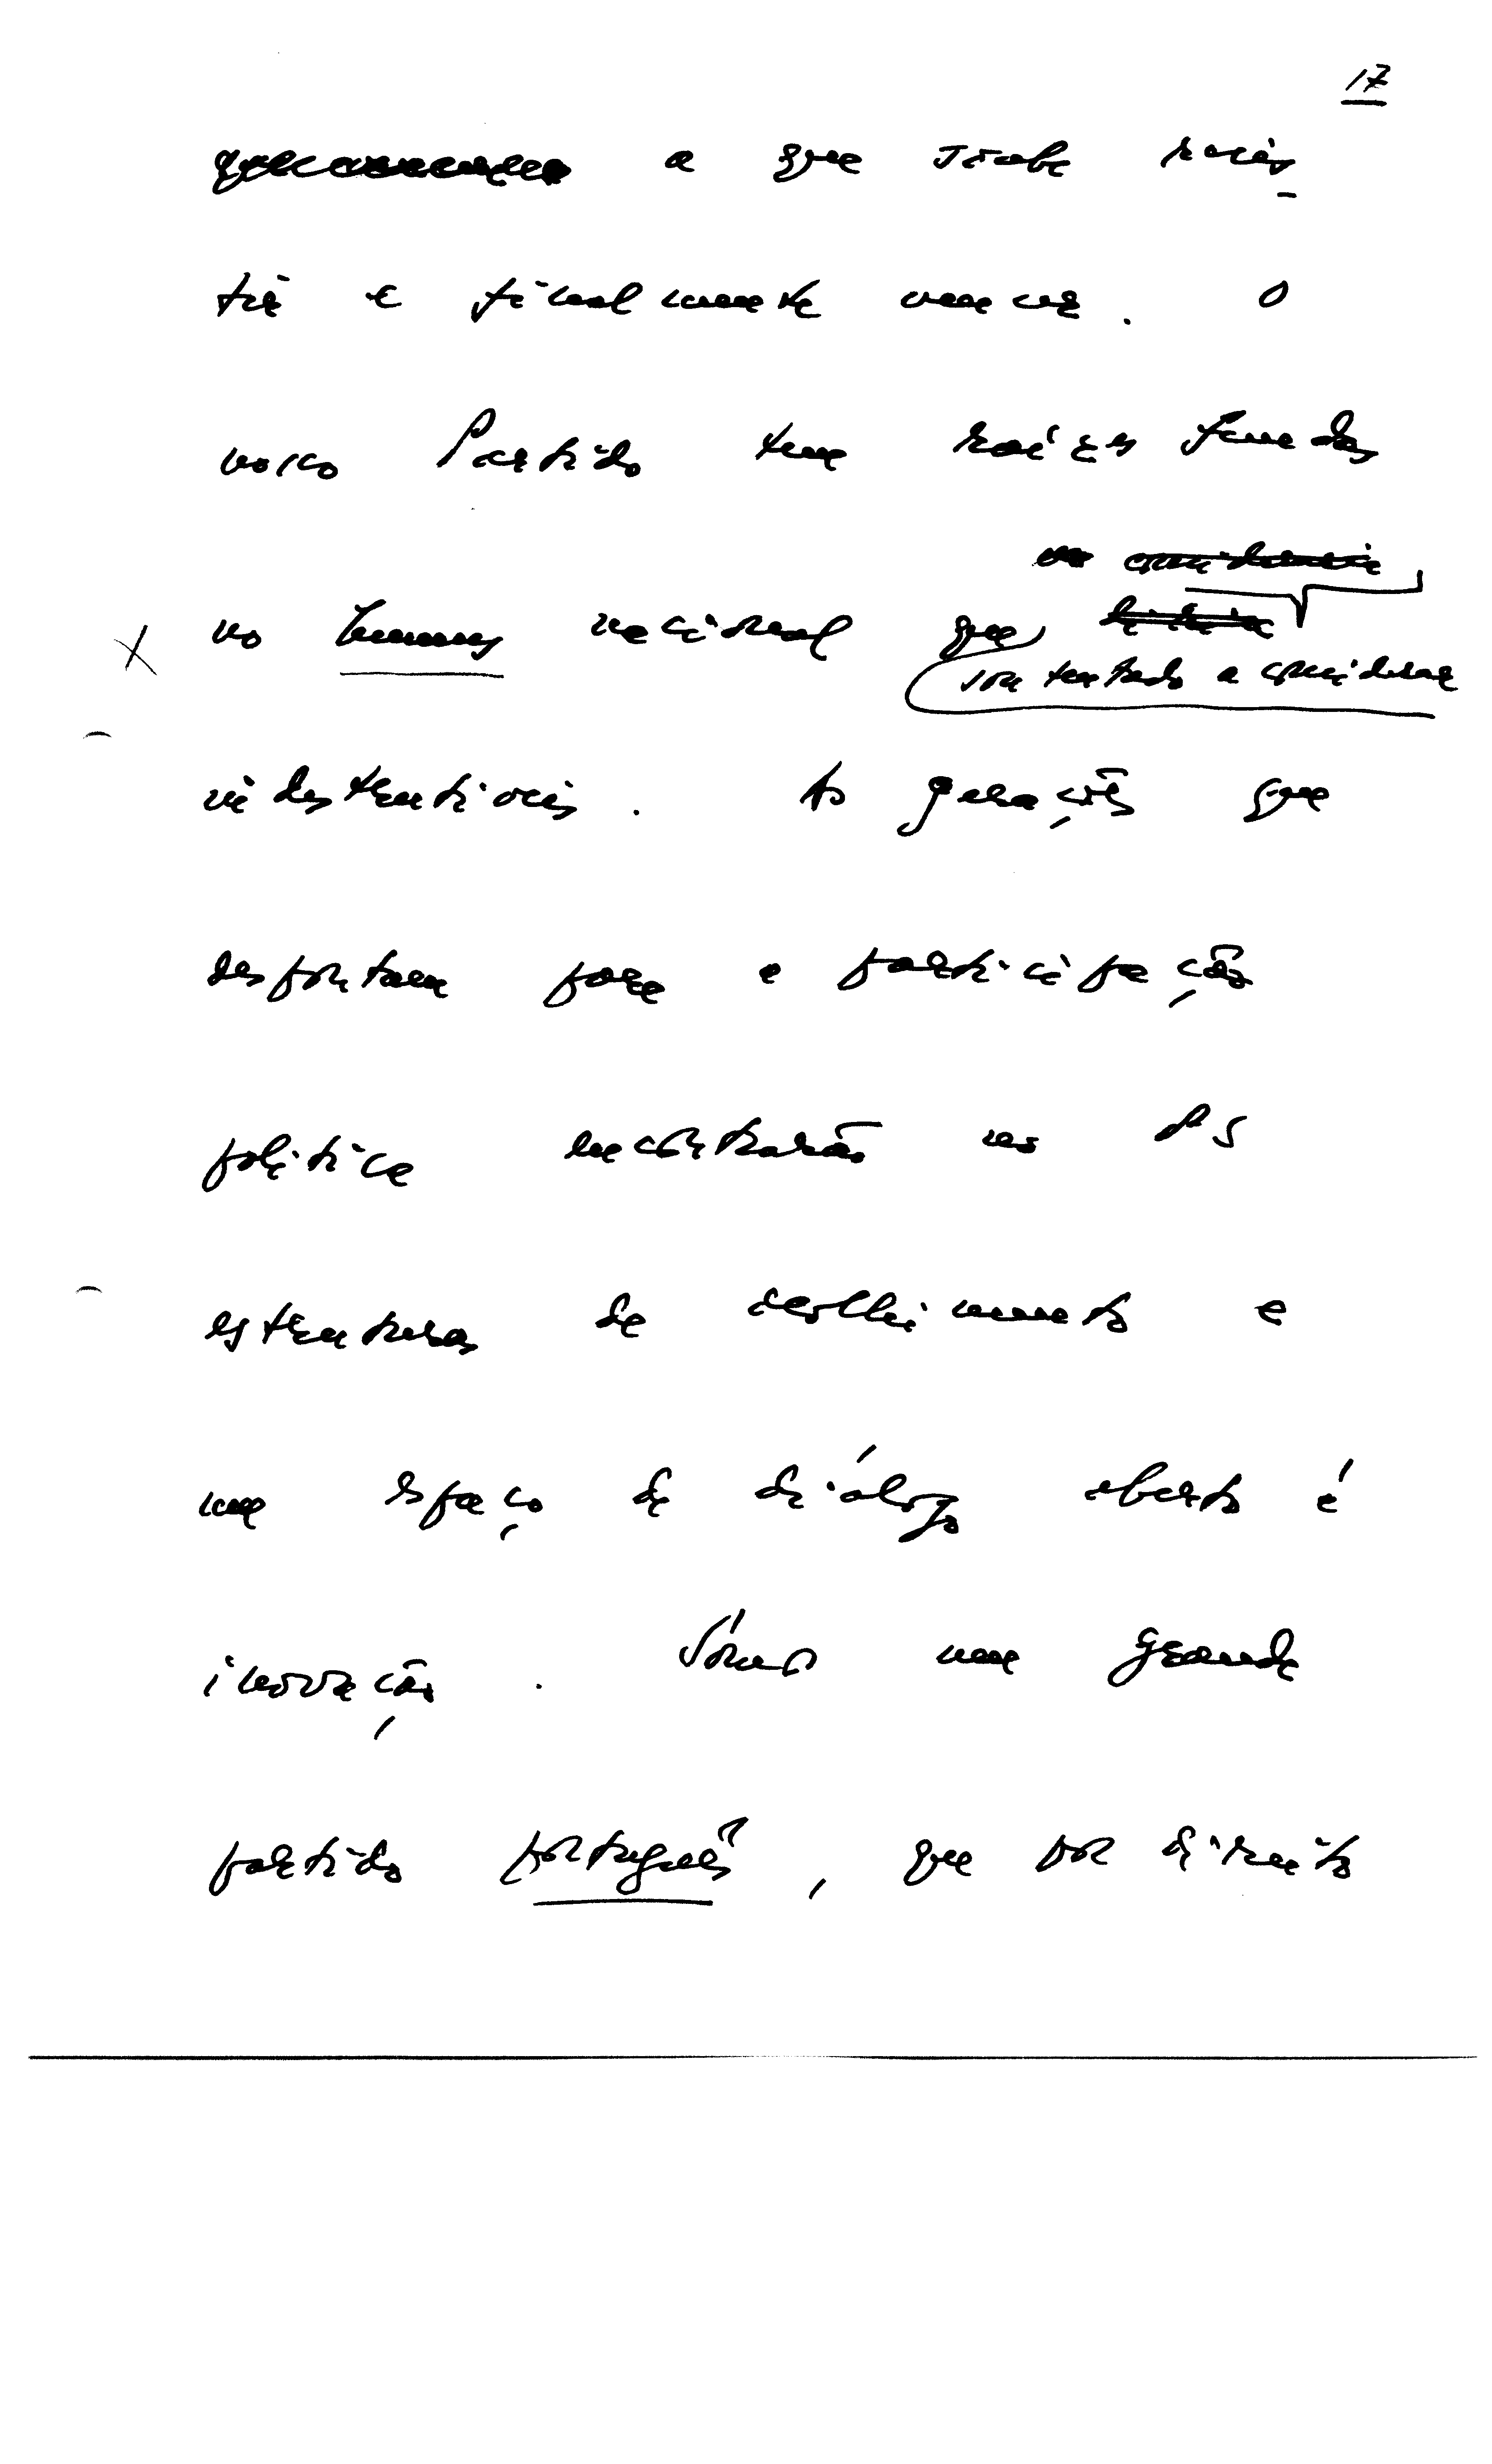 17
a que soube resis-
tir e finalmente vencer. O
nosso Partido tem raízes fundas
no humus nacional que,
sou tentado a considerar
indestrutíveis. As gerações que
despontam para a participação
política encontrarão no PS
estruturas de acolhimento e
um espaço de diálogo aberto é
inovação. Somos um grande
partido português, que por direito